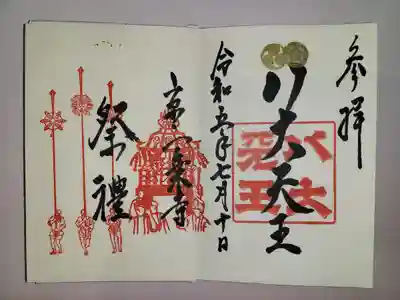 参拝
八大天王
八大
天王
令和五年七月十日
京一乗寺
祭禮